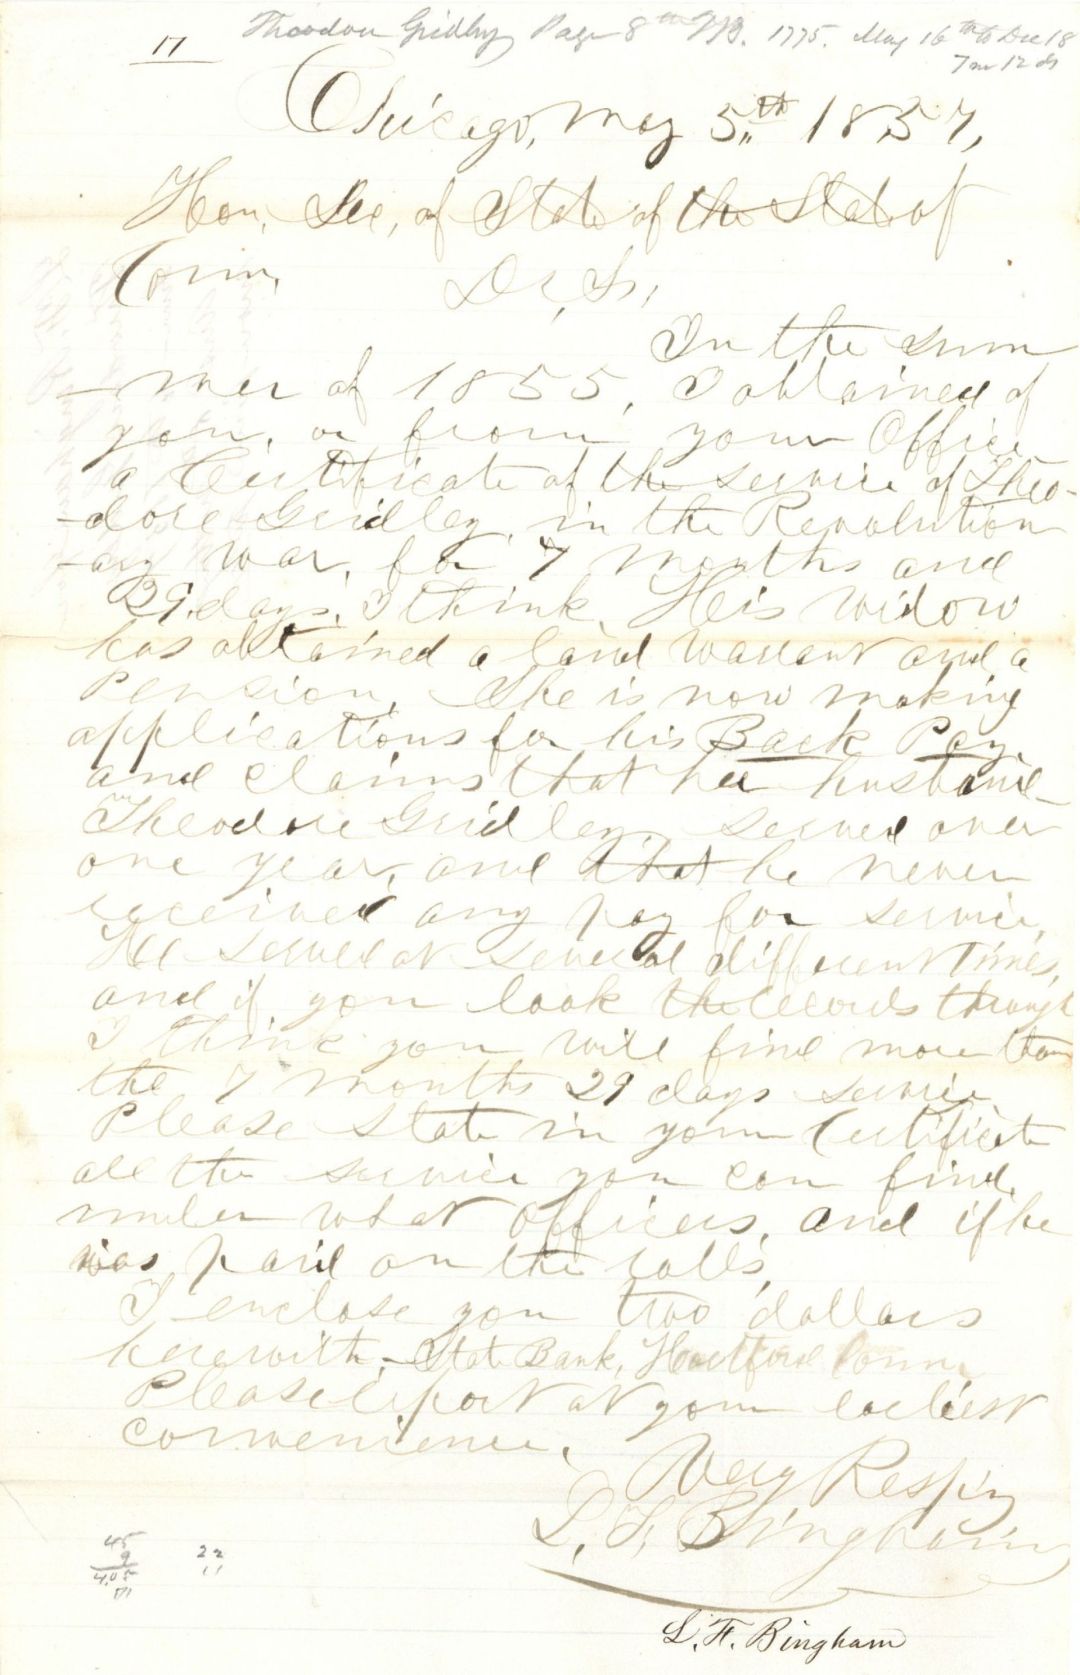 17
Theodore Gridley Page 8th 1775. May 16th to Dec 18
7 m 12 ds
Chicago, May 5th 1857,
Hon. Sec, of State of the State of
Conn. Dr, Sr,
In the sum
-mer of 1855, I obtained of
you, or from your Office
a Certificate of the service of Theo-
-dore Gridley, in the Revolution
-ary war, for 7 months and
29 days, I think, His widow
has obtained a land warrant and a
Pension, She is now making
applications for his Back Pay
and claims that her husband
Theodore Gridley, served over
one year, and that he never
received any pay for service,
He served at several different times,
and if you look the records through
I think you will find more than
the 7 months 29 days service
Please state in your Certificate
all the service you can find,
under what officers, and if he
was paid on the rolls,
I enclose you two dollars
herewith, - State Bank, Hartford Conn,
Please report at your earliest
convenience,
Very Respy
L. F. Bingham
45 22
9 11
4.05
L. F. Bingham